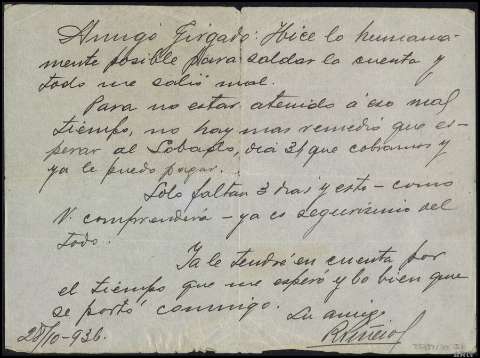 Amigo Firgado: Hice lo humana-
mente posible para saldar la cuenta y
todo me salió mal.
Para no estar atenido á eso mal
tiempo, no hay mas remedio que es-
perar al Sabado, dia 31 que cobramos y
ya le puedo pagar.
Solo faltan 3 dias y esto - como
V. comprenderá - ya es segurisimo del
todo.
Ya le tendré en cuenta por
el tiempo que me esperó y lo bien que
se portó conmigo.
Su amigo
28/10-936.